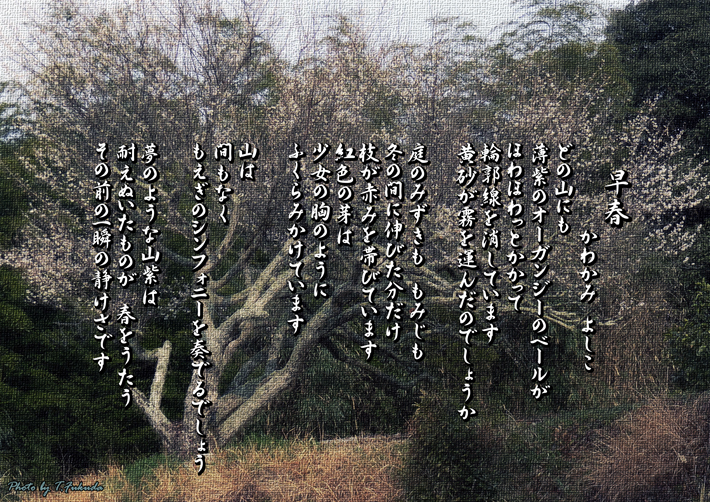 早春
かわかみ よしこ
どの山にも
薄紫のオーガンジーのベールが
ほわほわっとかかって
輪郭線を消しています
黄砂が霧を運んだのでしょうか
庭のみずきも もみじも
冬の間に伸びた分だけ
枝が赤みを帯びています
紅色の芽は
少女の胸のように
ふくらみかけています
山は
間もなく
もえぎのシンフォニーを奏でるでしょう
夢のような山紫は
耐えぬいたものが 春をうたう
その前の一瞬の静けさです
Photo by T.Fukuda